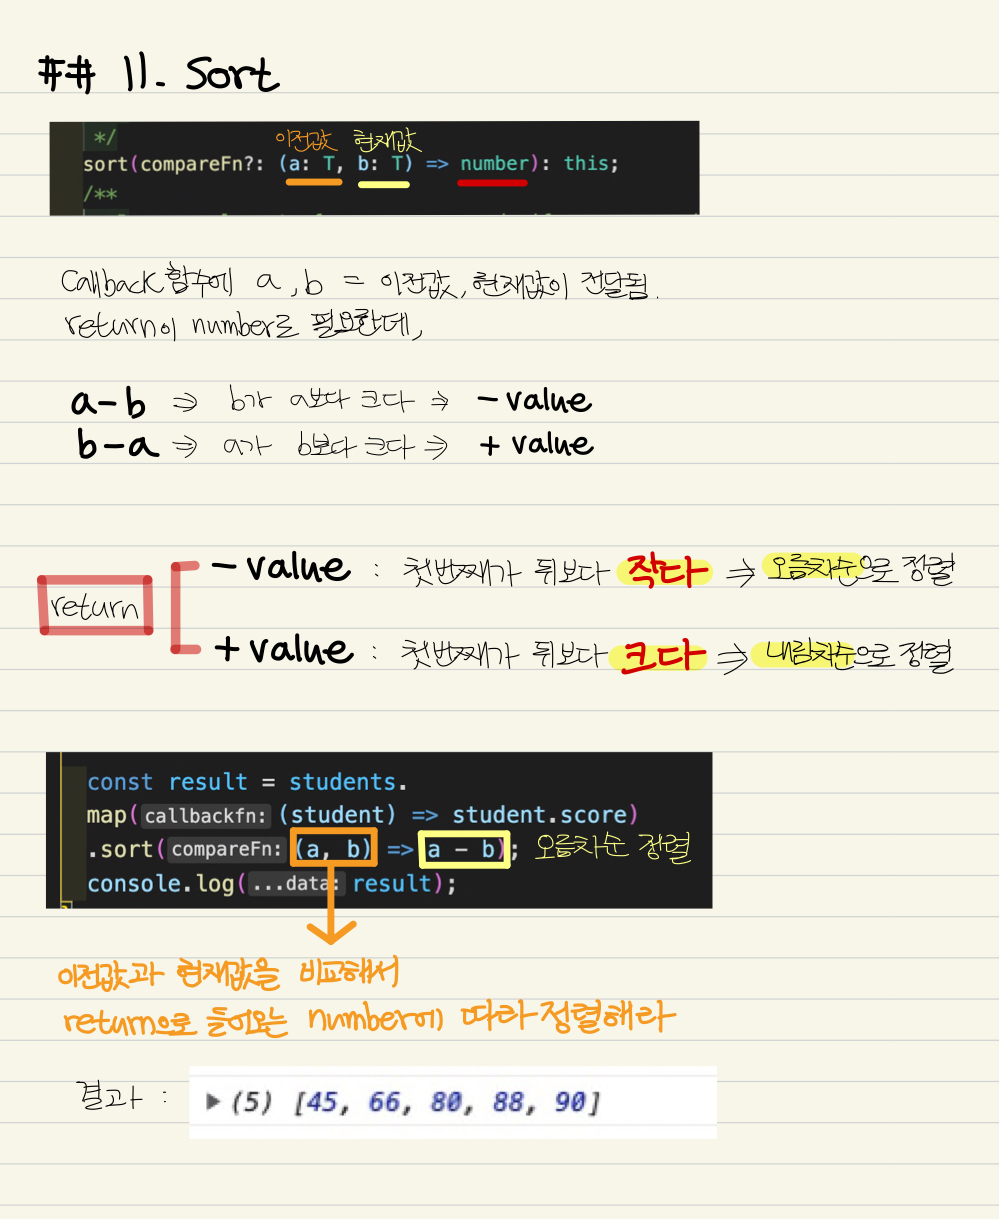 ## 11. Sort
*/
이전값 현재값
sort(compareFn?: (a: T, b: T) => number): this;
/**
Callback 함수에 a, b = 이전값, 현재값이 전달됨.
return이 number로 필요한데,
a-b ⇒ b가 a보다 크다 ⇒ - value
b-a ⇒ a가 b보다 크다 ⇒ + value
- value : 첫번째가 뒤보다 작다 ⇒ 오름차순으로 정렬
return
+ value : 첫번째가 뒤보다 크다 ⇒ 내림차순으로 정렬
const result = students.
map(callbackfn: (student) => student.score)
.sort(compareFn: (a, b) => a - b); 오름차순 정렬
console.log(...data: result);
이전값과 현재값을 비교해서
return으로 들어오는 number에 따라 정렬해라
결과 : ▶ (5) [45, 66, 80, 88, 90]